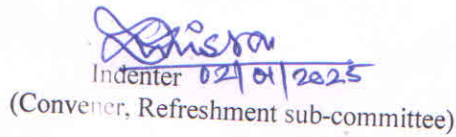 Indenter 02/01/2025
(Convener, Refreshment sub-committee)